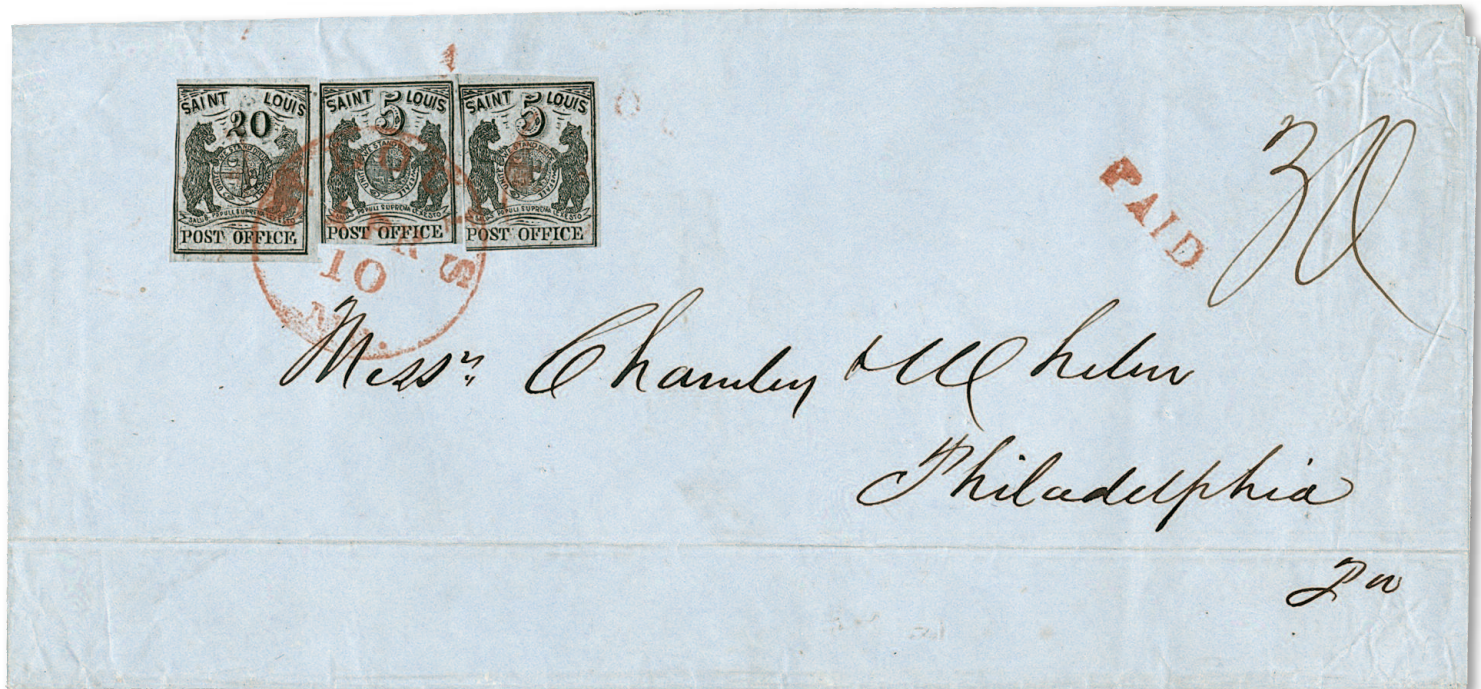 SAINT LOUIS
20
POST OFFICE
SAINT LOUIS
5
POST OFFICE
SAINT LOUIS
5
SALUS POPULI SUPREMA LEX ESTO
POST OFFICE
10
PAID
30
Messrs Charnley & Whelen
Philadelphia
Pa